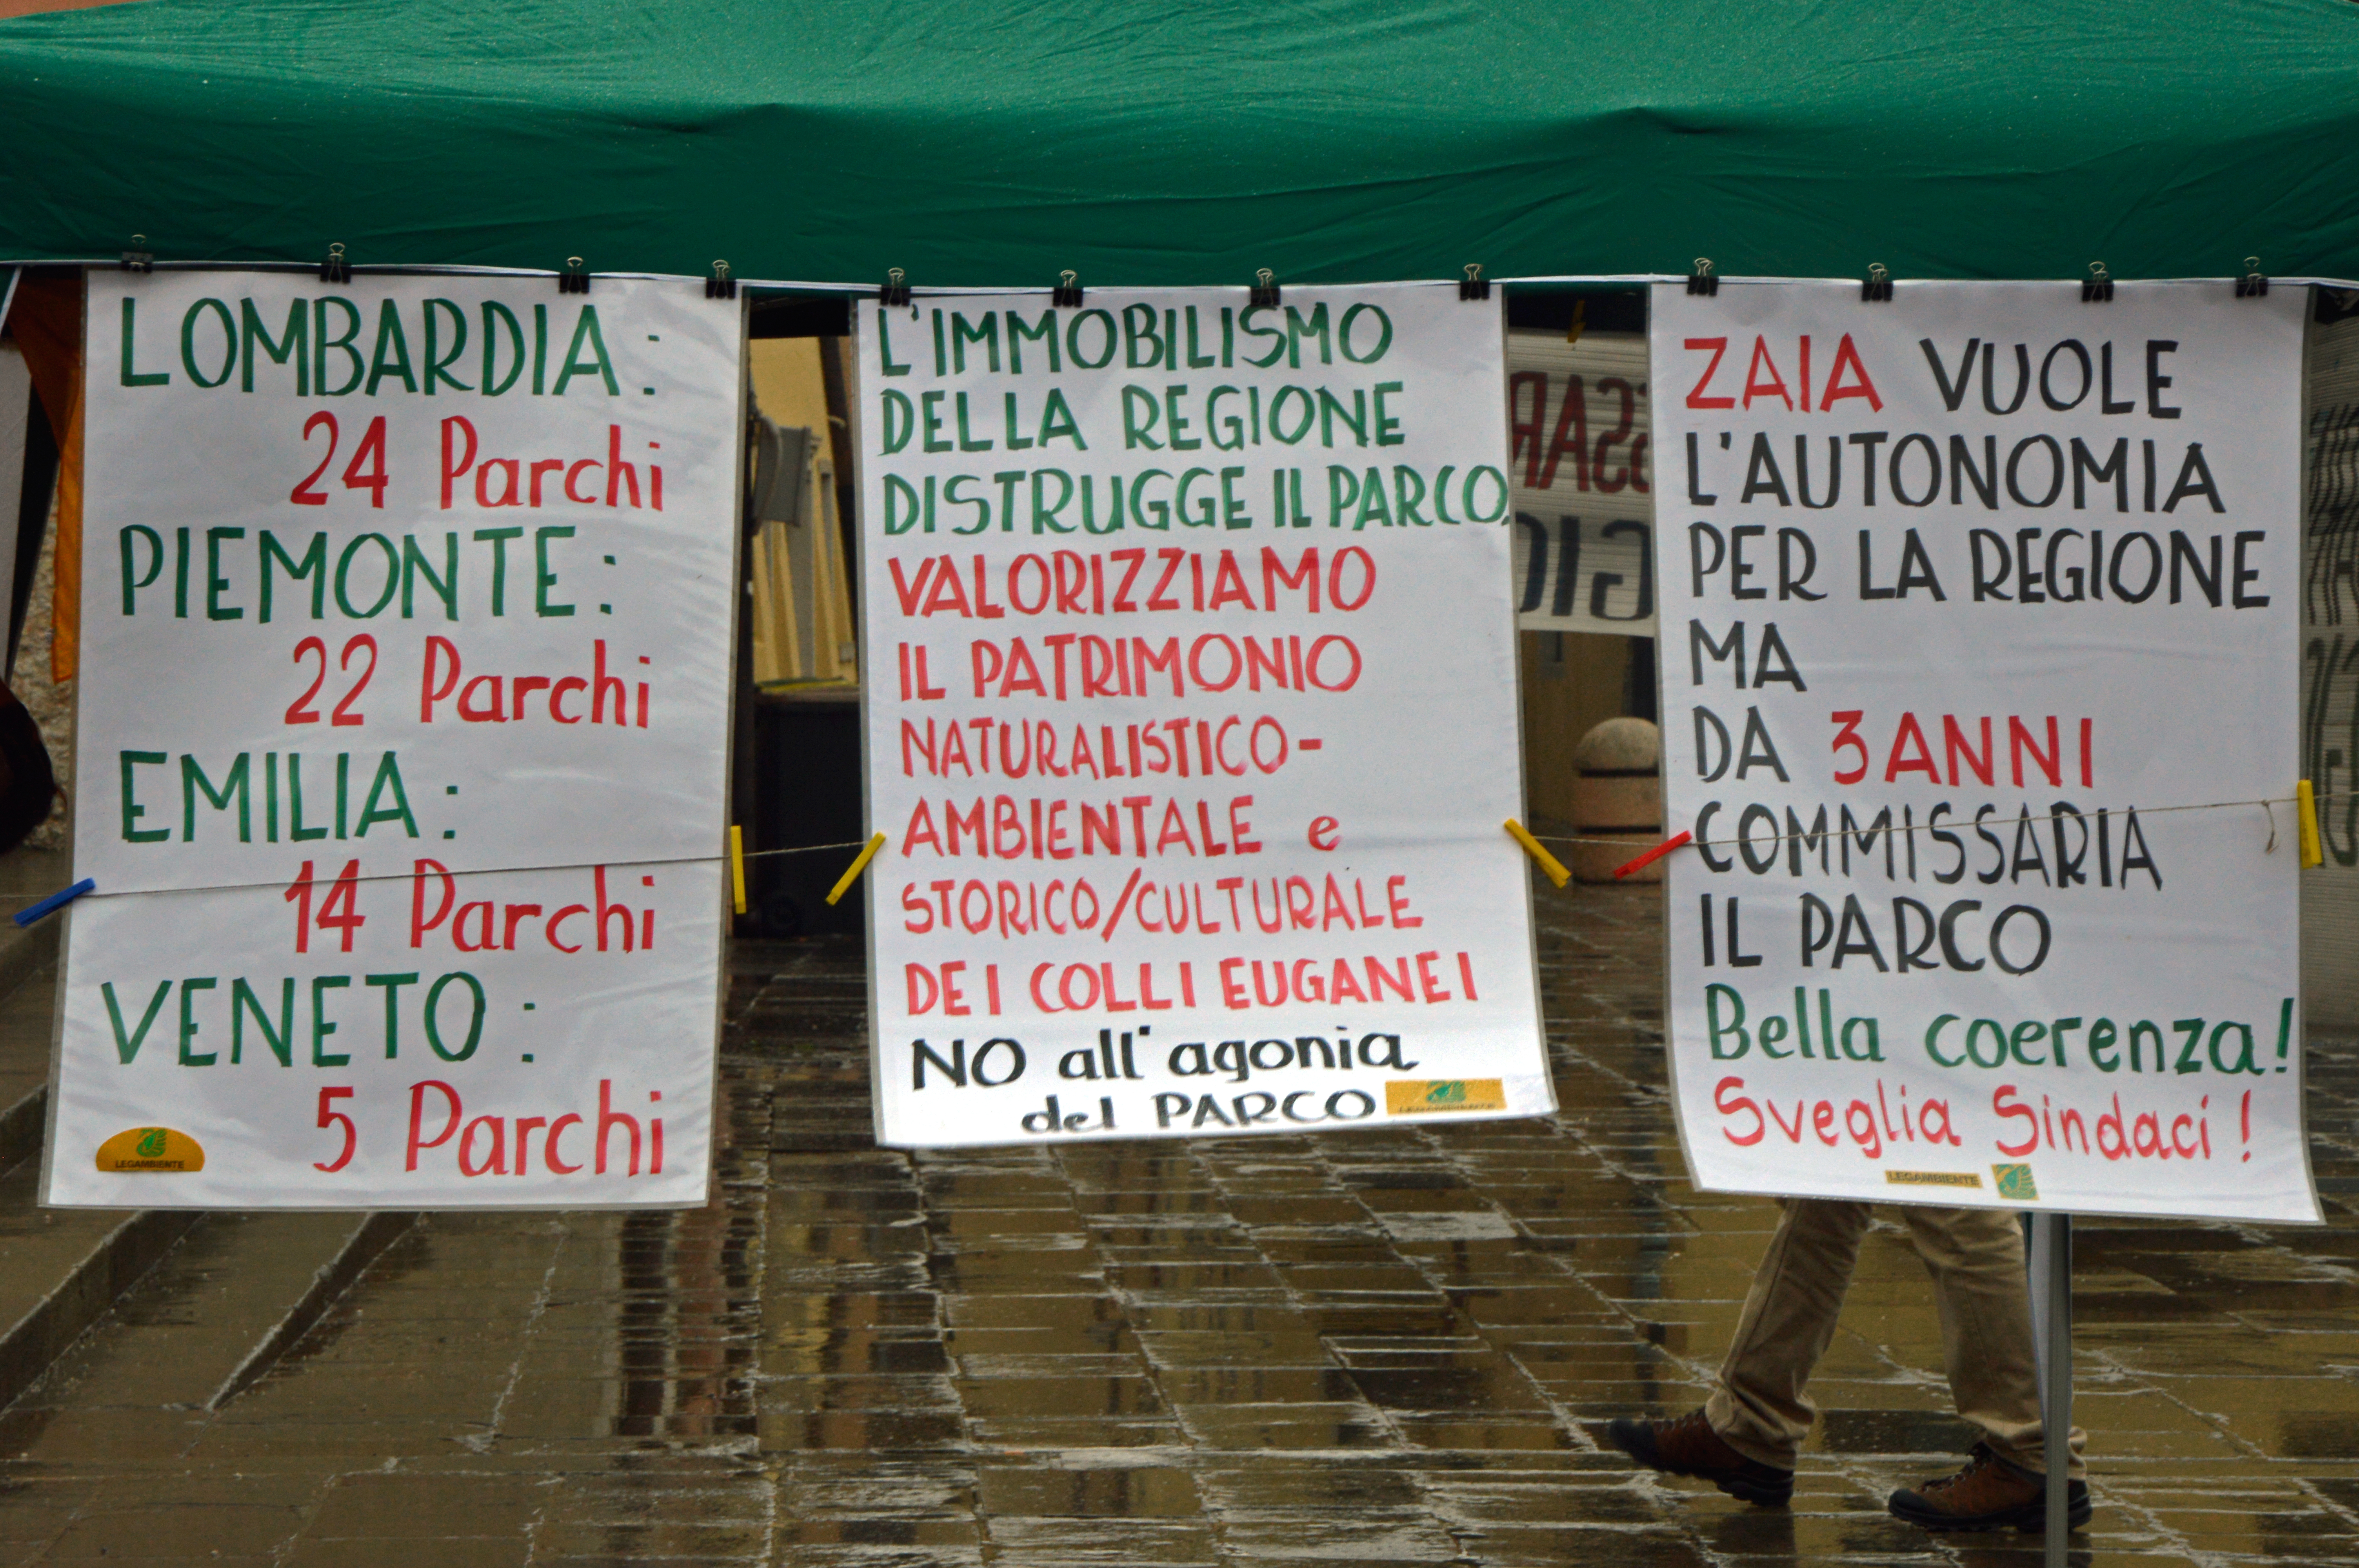 LOMBARDIA:
24 Parchi
PIEMONTE:
22 Parchi
EMILIA:
14 Parchi
VENETO:
5 Parchi
LEGAMBIENTE
L'IMMOBILISMO
DELLA REGIONE
DISTRUGGE IL PARCO,
VALORIZZIAMO
IL PATRIMONIO
NATURALISTICO-
AMBIENTALE e
STORICO/CULTURALE
DEI COLLI EUGANEI
NO all'agonia
del PARCO
LEGAMBIENTE
ZAIA VUOLE
L'AUTONOMIA
PER LA REGIONE
MA
DA 3 ANNI
COMMISSARIA
IL PARCO
Bella coerenza!
Sveglia Sindaci!
LEGAMBIENTE